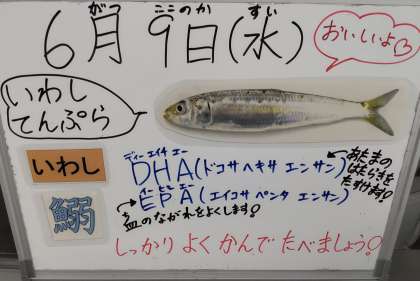 がつ ここのか すい
6月9日(水)
おいしいよ
いわし
てんぷら
いわし
鰯
ディー エイチ エー
DHA(ドコサ ヘキサ エンサン)
あたまの
はたらきを
たすけます!
イー ピー エー
EPA(エイコサ ペンタ エンサン)
血のながれをよくします!
しっかり よく かんで たべましょう!